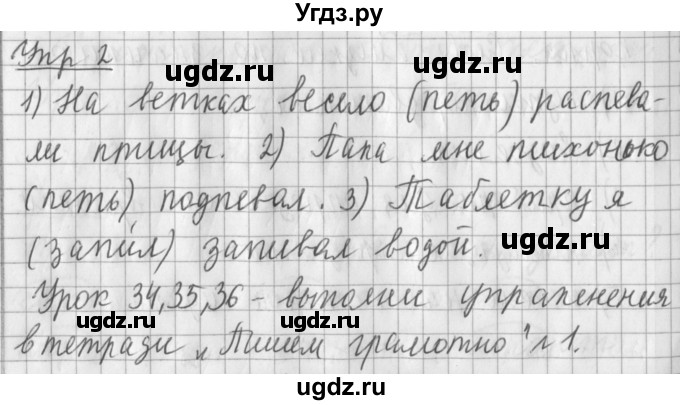 Угдз.ру
Упр 2
ugdz.ru ugdz.ru
1) На ветках весело (петь) распева-
ли птицы. 2) Папа мне тихонько
ugdz.ru ugdz.ru
(петь) подпевал. 3) Таблетку я
(запи́л) запивал водой.
ugdz.ru
Урок 34,35,36 - выполни упражнения
ugdz.ru ugdz.ru
в тетради „Пишем грамотно" №1.
ugdz.ru